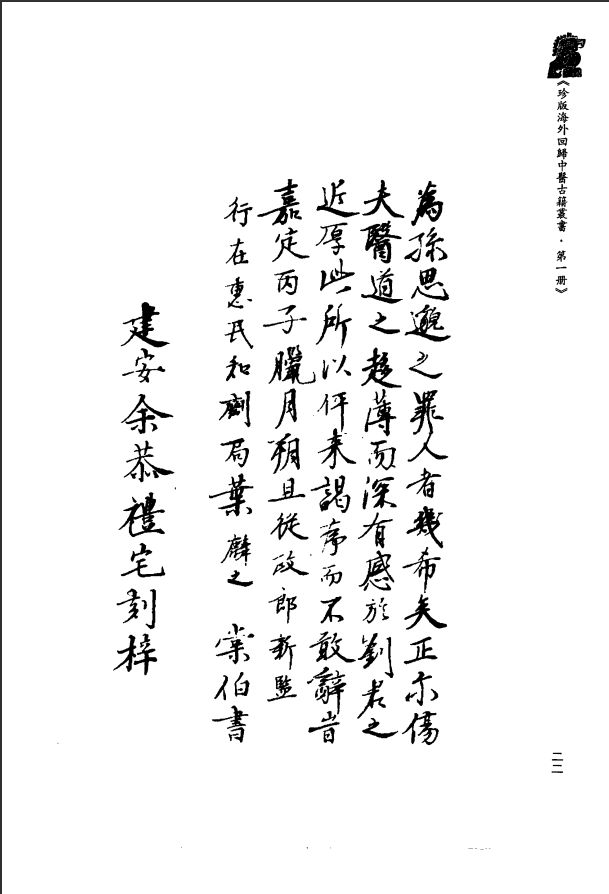 《珍版海外回歸中醫古籍叢書·第一册》
為孫思邈之罪人者幾希矣正尔傷
夫醫道之趍薄而深有感於劉君之
近厚此所以伻来謁序而不敢辭旹
嘉定丙子臘月朔旦從政郎新監
行在惠民和劑局葉麟之 棠伯書
建安余恭禮宅刻梓
二二